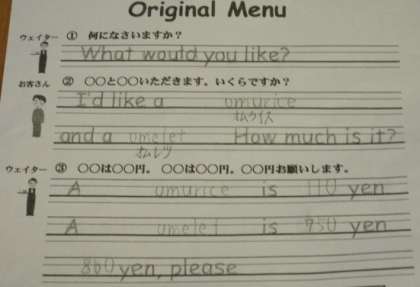 Original Menu
ウェイター ① 何になさいますか?
What would you like?
お客さん ② ○○と○○いただきます。いくらですか?
I'd like a umurice
オムライス
and a umelet How much is it?
オムレツ
ウェイター ③ ○○は○○円。 ○○は○○円。○○円お願いします。
A umurice is 110 yen
A umelet is 950 yen
860 yen, please